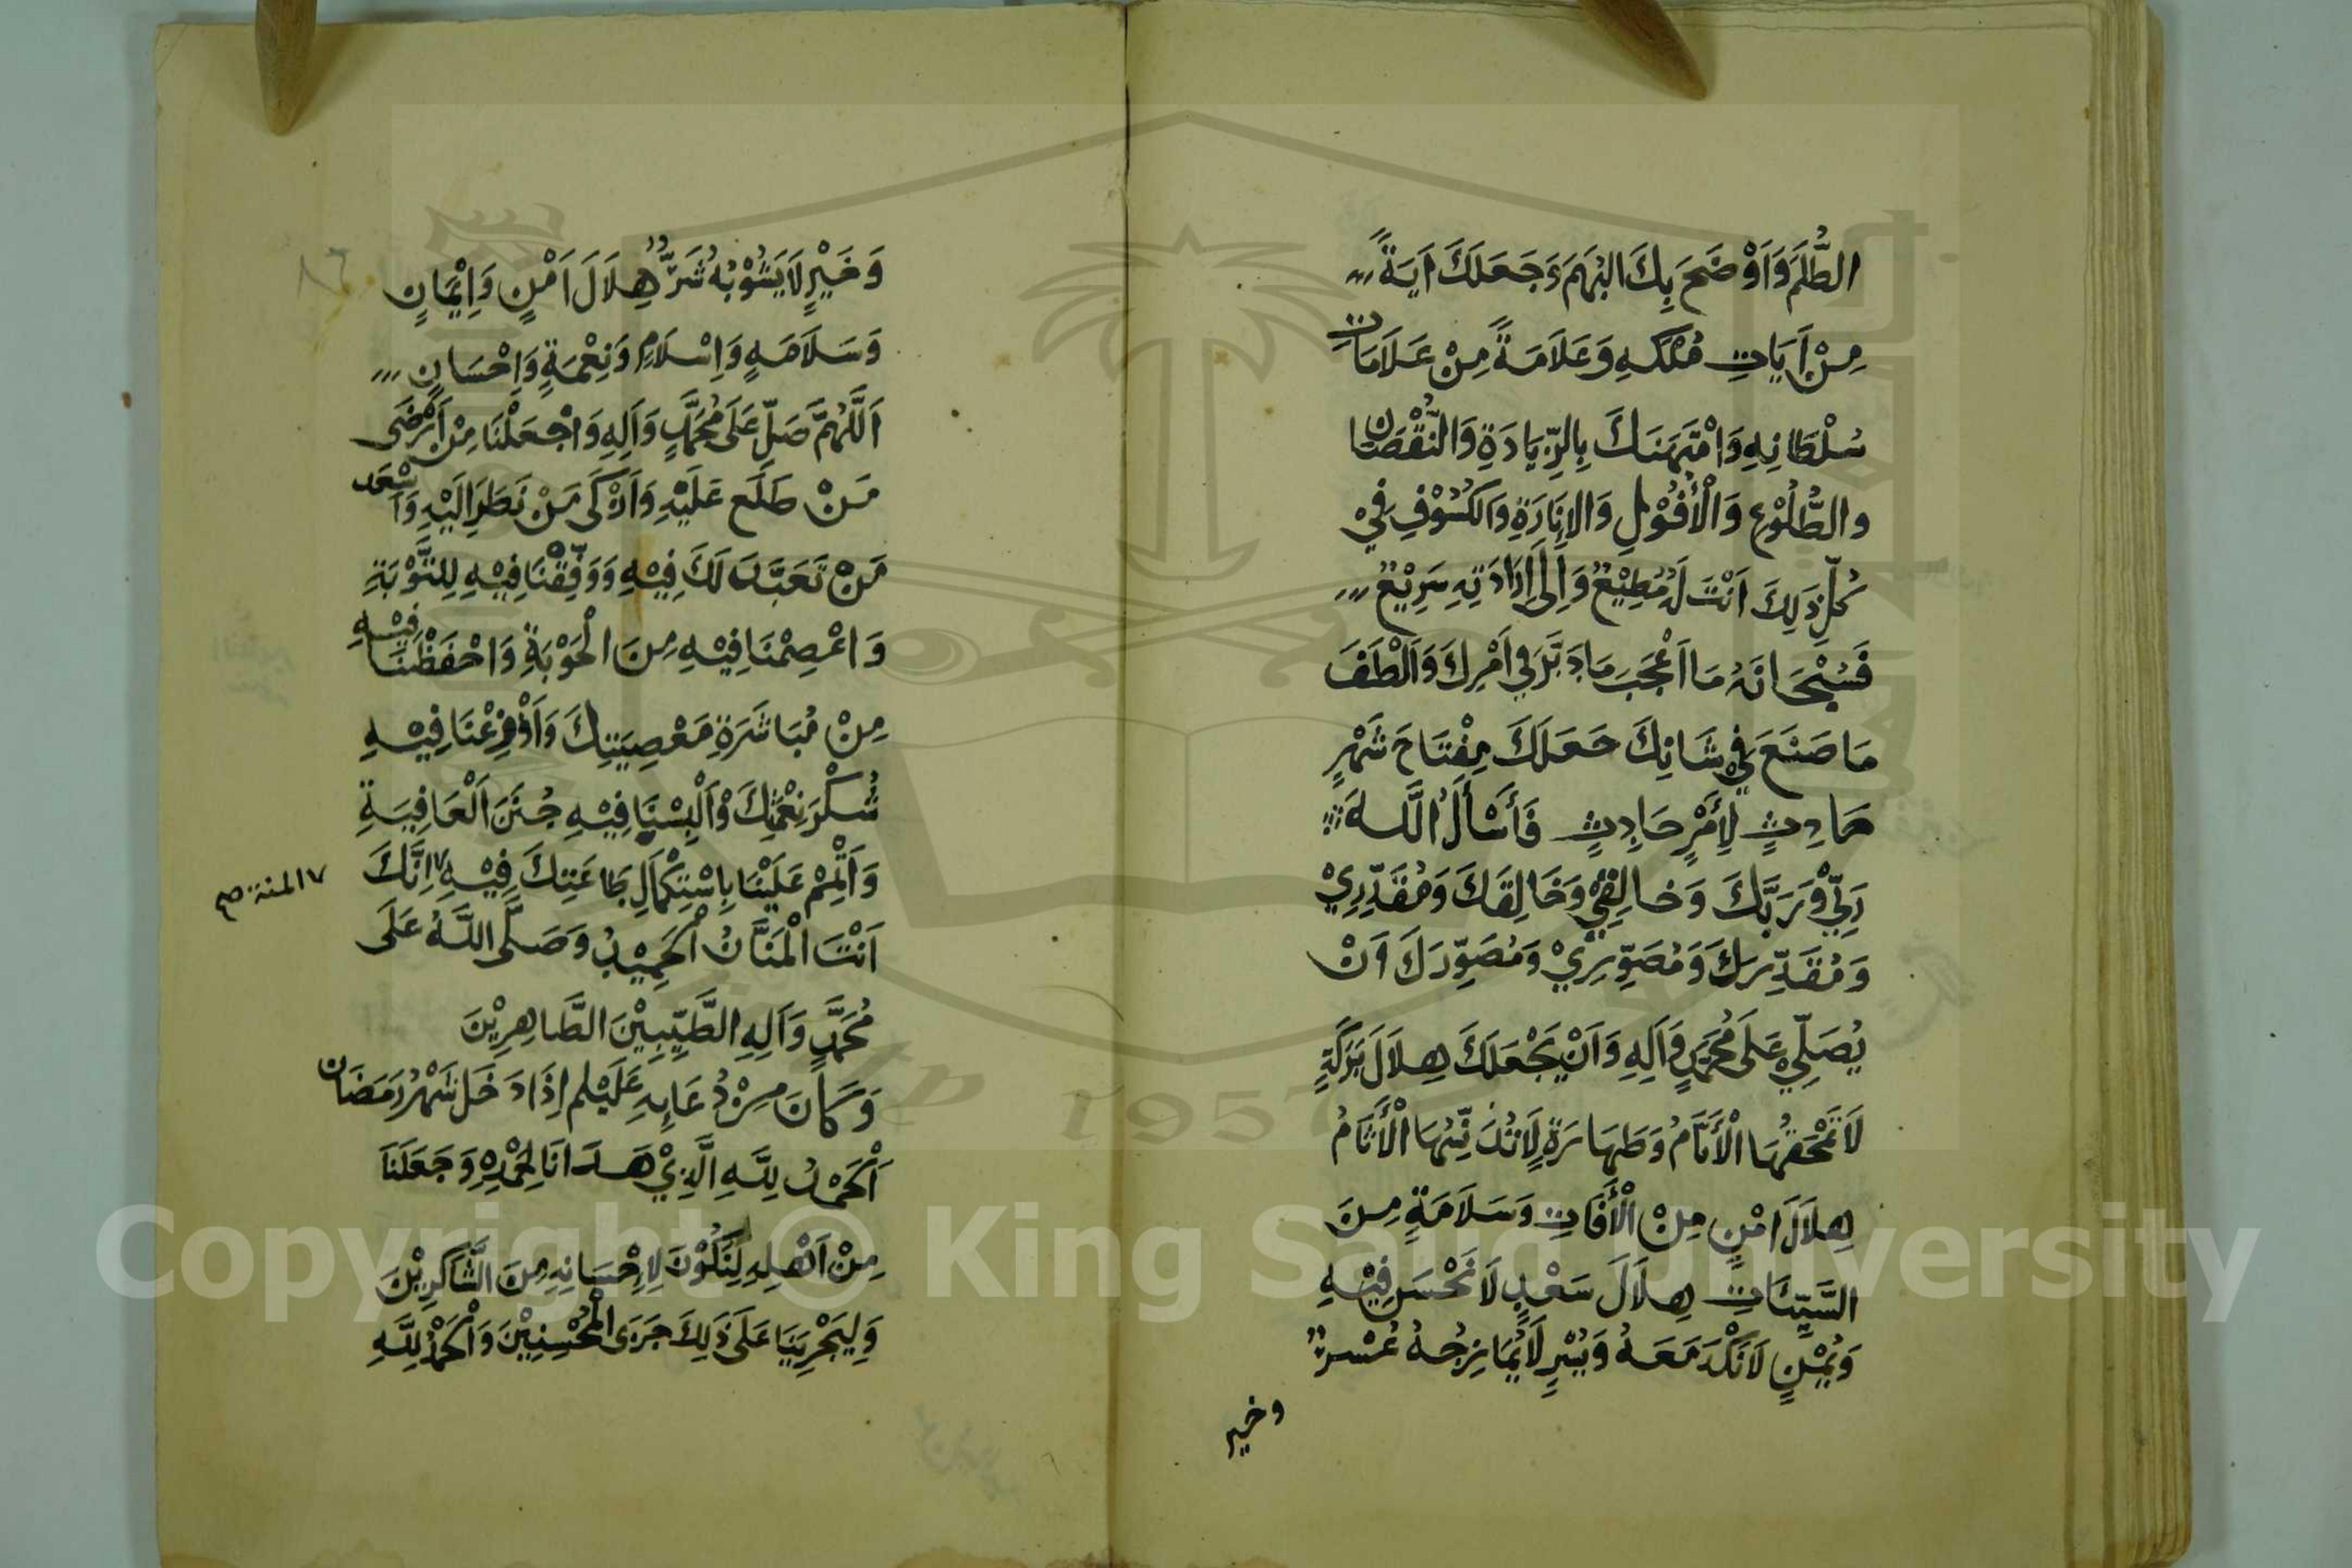 الظُّلَمَ وَاَوْضَحَ بِكَ الْبُهَمَ وَجَعَلَكَ اٰيَةً
مِنْ اٰيَاتِ مُلْكِهِ وَعَلَامَةً مِنْ عَلَامَاتِ
سُلْطَانِهِ وَامْتَهَنَكَ بِالزِّيَادَةِ وَالنُّقْصَانِ
والطُّلُوْعِ وَالْأُفُوْلِ وَالإِنَارَةِ وَالكُسُوْفِ فِيْ
كُلِّ ذٰلِكَ اَنْتَ لَهُ مُطِيْعٌ وَاِلٰى اِرَادَتِهِ سَرِيْعٌ
فَسُبْحَانَهُ مَا اَعْجَبَ مَا دَبَّرَ فِي اَمْرِكَ وَاَلْطَفَ
مَا صَنَعَ فِيْ شَانِكَ جَعَلَكَ مِفْتَاحَ شَهْرٍ
حَادِثٍ لِأَمْرٍ حَادِثٍ فَأَسْأَلُ اللَّهَ
رَبِّيْ وَرَبَّكَ وَخَالِقِيْ وَخَالِقَكَ وَمُقَدِّرِيْ
وَمُقَدِّرَكَ وَمُصَوِّرِيْ وَمُصَوِّرَكَ اَنْ
يُصَلِّيْ عَلَى مُحَمَّدٍ وَاٰلِهِ وَاَنْ يَجْعَلَكَ هِلَالَ بَرَكَةٍ
لَا تَمْحَقُهَا الْأَيَّامُ وَطَهَارَةٍ لَا تُدَنِّسُهَا الْأَثَامُ
هِلَالَ اَمْنٍ مِنَ الْأَفَاتِ وَسَلَامَةٍ مِنَ
السَّيِّئَاتِ هِلَالَ سَعْدٍ لَا نَحْسَ فِيْهِ
وَيُمْنٍ لَا نَكَدَ مَعَهُ وَيُسْرٍ لَا يُمَازِجُهُ عُسْرٌ
وخير
وَخَيْرٍ لَا يَشُوْبُهُ شَرٌّ هِلَالَ اَمْنٍ وَاِيْمَانٍ
وَسَلَامَةٍ وَاِسْلَامٍ وَنِعْمَةٍ وَاِحْسَانٍ
اَللَّهُمَّ صَلِّ عَلَى مُحَمَّدٍ وَاٰلِهِ وَاجْعَلْنَا مِنْ اَرْضَى
مَنْ طَلَعَ عَلَيْهِ وَاَزْكَى مَنْ نَظَرَ اِلَيْهِ وَاَسْعَد
مَنْ تَعَبَّدَ لَكَ فِيْهِ وَوَفِّقْنَا فِيْهِ لِلتَّوْبَةِ
وَاعْصِمْنَا فِيْهِ مِنَ الْحَوْبَةِ وَاحْفَظْنَا فِيْهِ
مِنْ مُبَاشَرَةِ مَعْصِيَتِكَ وَاَوْزِعْنَا فِيْهِ
شُكْرَ نِعْمَتِكَ وَاَلْبِسْنَا فِيْهِ جُنَنَ الْعَافِيَةِ
وَاَتْمِمْ عَلَيْنَا بِاسْتِكْمَالِ طَاعَتِكَ فِيْهِ ٧ اِنَّكَ
٧ المنة صح
اَنْتَ الْمَنَّانُ الْحَمِيْدُ وَصَلَّى اللَّهُ عَلَى
مُحَمَّدٍ وَاٰلِهِ الطَّيِّبِيْنَ الطَّاهِرِيْنَ
وَكَانَ مِنْ دُعَائِهِ عَلَيْلم اِذَا دَخَلَ شَهْرُ رَمَضَان
اَلْحَمْدُ لِلَّهِ الَّذِيْ هَدَانَا لِحَمْدِهِ وَجَعَلَنَا
مِنْ اَهْلِهِ لِنَكُوْنَ لِاِحْسَانِهِ مِنَ الشَّاكِرِيْنَ
وَلِيَجْزِيَنَا عَلَى ذٰلِكَ جَزَى الْمُحْسِنِيْنَ وَالْحَمْدُ لِلَّهِ
1957
Copyright © King Saud University